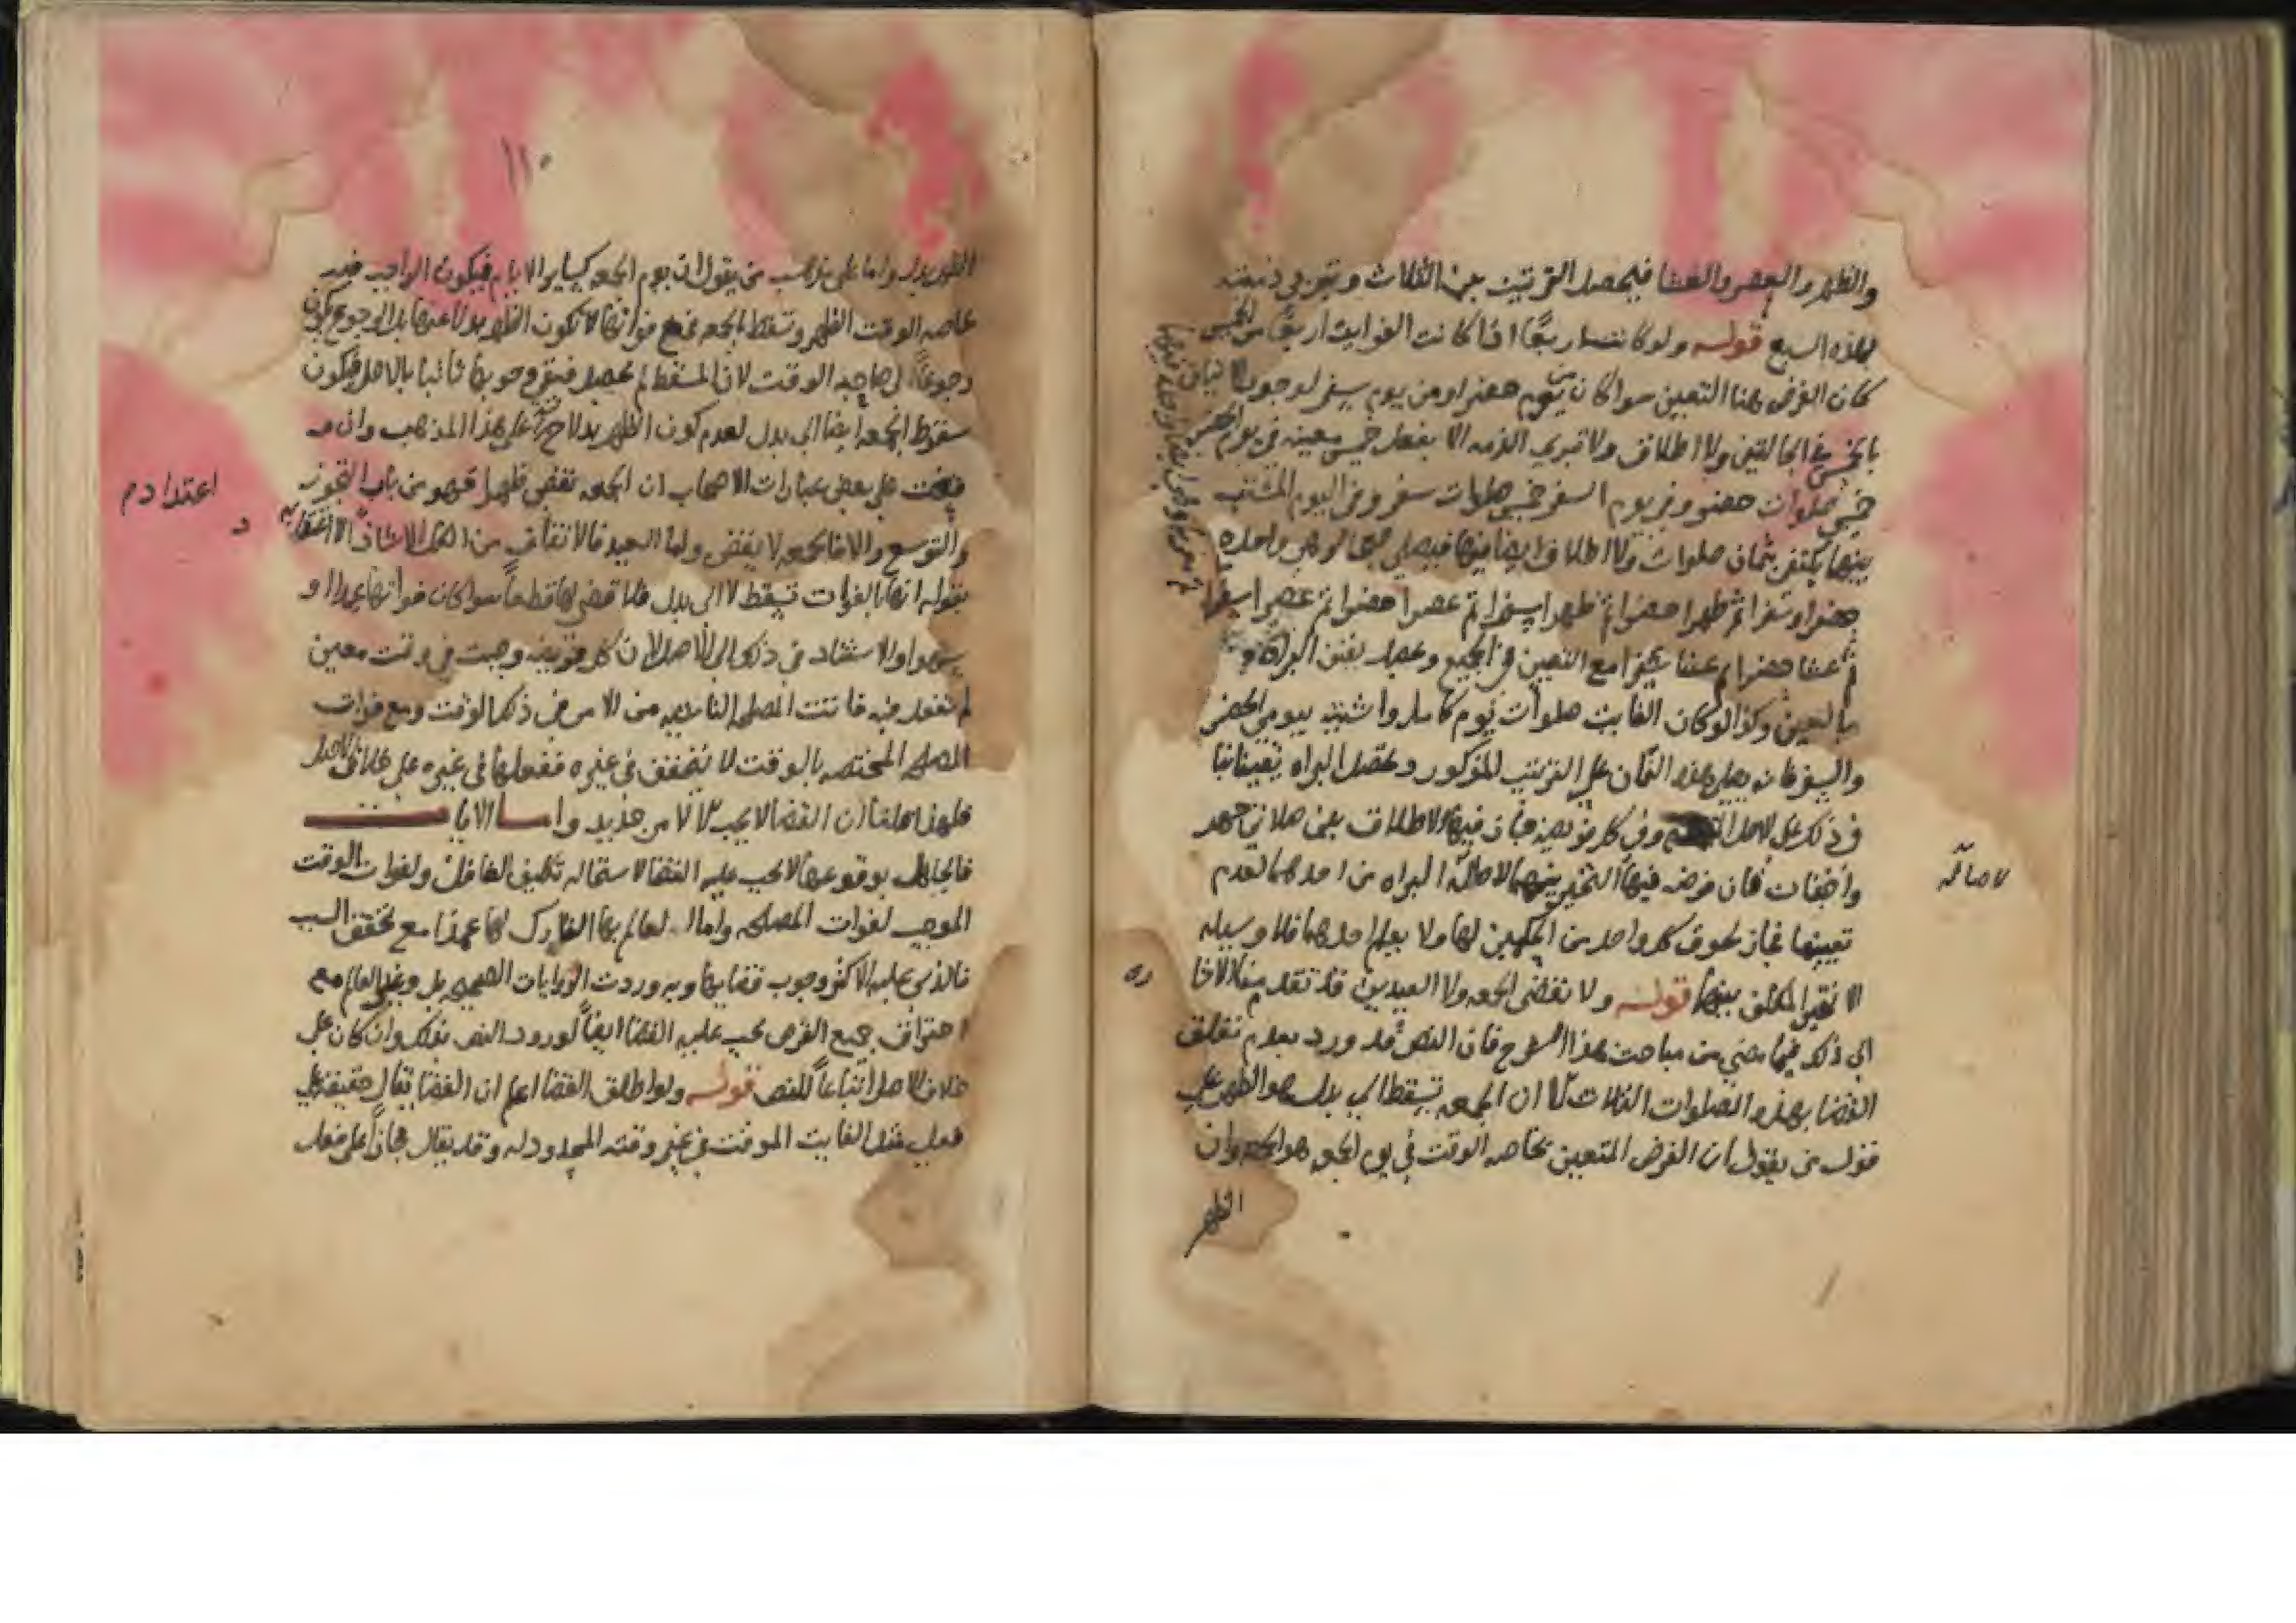 والظهر والعصر والعشا فيحصل الترتيب بين الثلاث وتبري ذمته
بهذه السبع قوله ولو كانت اربعا اذا كانت الفوايت اربعا من الخمس
كان الفرض هنا التعيين سوا كان من يوم حضر او من يوم سفر لوجوب الاتيان
بالخمس في الحالتين ولا اطلاق ولا تبري الذمه الا بفعل خمس معينه في يوم الحضر
خمس صلوات حضر وفي يوم السفر خمس صلوات سفر وفي اليوم المشتبه
بينهما يكتفي بثمان صلوات ولا اطلاق ايضا فيها فيصلي صبحا لو هي واحده
حضرا وسفرا ثم ظهرا حضرا ثم ظهرا سفرا ثم عصرا حضرا ثم عصرا سفرا
ثم عشا حضرا ثم عشا سفرا مع التعيين في الجميع وتحصل يقين البراه
باليقين وكذا لو كان الفايت صلوات يوم كامل واشتبه بيومي الحضر
والسفر فانه يصلي هذه الثمان على الترتيب المذكور وتحصل البراه يقينا
في ذلك على الاصل وفي كل موضع جاز فيه الاطلاق بين صلاتي جهر
واخفات كان فرضه فيها التخيير بينهما لاصالة البراه من احدهما لعدم
تعيينها فجاز لحوق كل واحد من الحكمين لها ولا يعلم احدهما فلا وسيله
الا تخير المكلف بينهما قوله ولا تقضى الجمعه ولا العيدين قد تقدم منا الاشا
ره
الى ذلك فيما مضي من مباحث هذا الشرح فان النص قد ورد بعدم تعلق
القضا بهذه الصلوات الثلاث الا ان الجمعه تسقط الى بدل هو الظهر على
قول من يقول ان الفرض المتعين بخاصه الوقت في يوم الجمعه هو الجمعه وان
الظهر
لاصاله
١١٠
الظهر بدل واما على مذهب من يقول ان يوم الجمعه كساير الايام فيكون الواجب فيه
بخاصه الوقت الظهر وتسقط بالجمعه فمع فواتها لا تكون الظهر بدلا عنها بل الرجوع يكون
رجوعا الى صاحبه الوقت لان المسقط لم يحصل فيبقى وجوبها ثابتا بالاصل فيكون
سقوط الجمعه ايضا الى بدل لعدم كون الظهر بدلا على هذا المذهب وان
وقعت على بعض عبارات الاصحاب ان الجمعه تقضى ظهرا فهو من باب التجوز
والتوسع والا فالجمعه لا تقضى واما العيد فالاتفاق من اهل الاشاذ لا اعتداد به
بقوله انها بالفوات تسقط لا الى بدل فلا قضى لها قطعا سوا كان فواتها عمدا او
سهوا والاستناد في ذلك الى الاصل لان كل فريضه وجبت في وقت معين
لم تفعل فيه فاتت المصلحه الناشيه من الامر في ذلك الوقت ومع فوات
المصلحه المختصه بالوقت لا يتحقق في غيره ففعلها في غيره على خلاف الاصل
فلهذا قلنا ان القضا لا يجب الا لامر جديد واما الايات
فالجاهل بوقوعها لا يجب عليه القضا لاستحاله تكليف الغافل ولفوات الوقت
الموجب لفوات المصلحه واما العالم بها التارك لها عمدا مع تحقق السبب
فالذي عليه الاكثر وجوب قضايها وبه وردت الروايات الصحيحه بل وغير العالم مع
احتراق جميع القرص يجب عليه القضا ايضا لورود النص بذلك وان كان على
خلاف الاصل اتباعا للنص قوله ولو اطلق القضا اعلم ان القضا يقال حقيقه على
فعل مثل الفايت الموقت في غير وقته المحدود له وقد يقال مجازا على فعل
اعتداد م